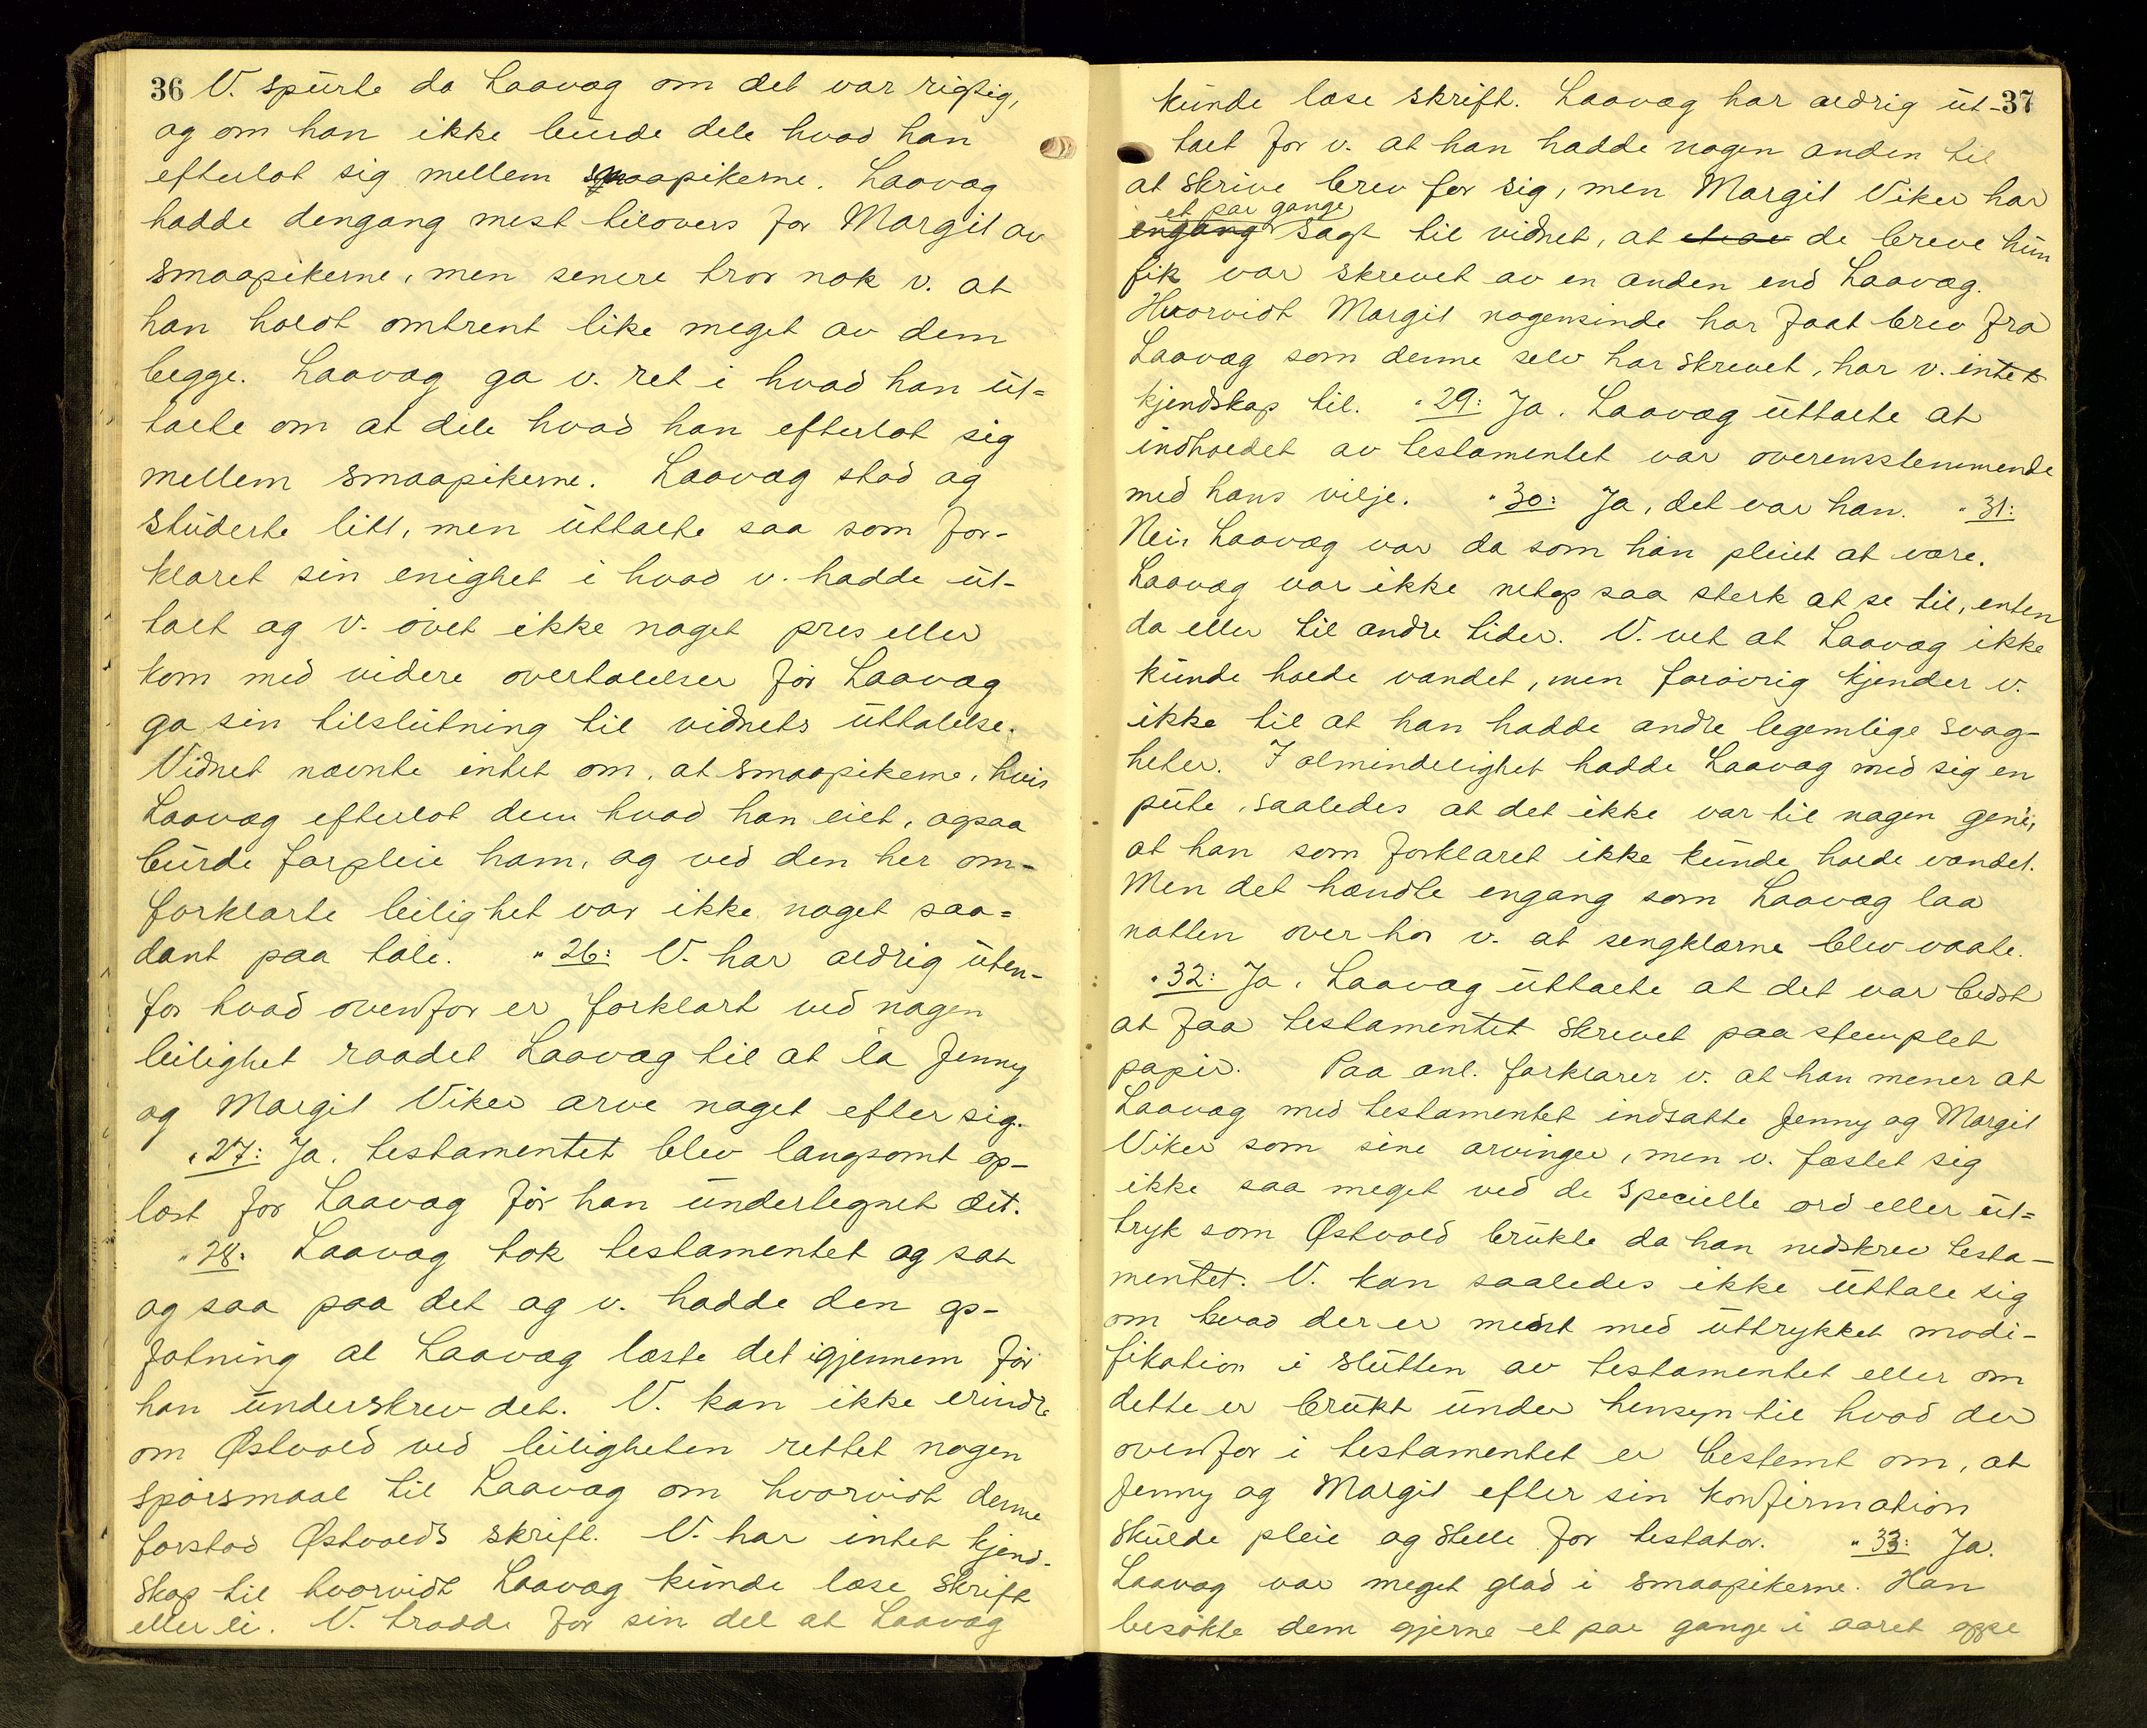 36 V. spurte da Laavag om det var rigtig,
og om han ikke burde dele hvad han
efterlot sig mellem smaapikerne. Laavag
hadde dengang mest tilovers for Margit av
smaapikerne, men senere tror nok v. at
han holdt omtrent like meget av dem
begge. Laavag ga v. ret i hvad han ut=
talte om at dele hvad han efterlot sig
mellem smaapikerne. Laavag stod og
studerte litt, men uttalte saa som for-
klaret sin enighet i hvad v. hadde ut-
talt og v. övet ikke noget pres eller
kom med videre overtalelser før Laavag
ga sin tilslutning til vidnets uttalelse.
Vidnet nævnte intet om, at smaapikerne, hvis
Laavag efterlot dem hvad han eiet, ogsaa
burde forpleie ham, og ved den her om-
forklarte leilighet var ikke noget saa=
dant paa tale. " 26: V. har aldrig uten-
for hvad ovenfor er forklart ved nogen
leilighet raadet Laavag til at la Jenny
og Margit Viker arve noget efter sig.
" 27: Ja, testamentet blev langsomt op-
læst for Laavag før han undertegnet det.
" 28: Laavag tok testamentet og sat
og saa paa det og v. hadde den op-
fatning at Laavag læste det igjennem før
han underskrev det. V. kan ikke erindre
om Østvold ved leiligheten rettet nogen
spørsmaal til Laavag om hvorvidt denne
forstod Østvolds skrift. V. har intet kjend-
skap til hvorvidt Laavag kunde læse skrift
eller ei. V. trodde for sin del at Laavag
37
kunde læse skrift. Laavag har aldrig ut-
talt for v. at han hadde nogen anden til
at skrive brev for sig, men Margit Viker har
et par gange
engang sagt til vidnet, at de breve hun
fik var skrevet av en anden end Laavag.
Hvorvidt Margit nogensinde har faat brev fra
Laavag som denne selv har skrevet, har v. intet
kjendskap til. " 29: Ja. Laavag uttalte at
indholdet av testamentet var overensstemmende
med hans vilje. " 30: Ja, det var han. " 31:
Nei, Laavag var da som han pleiet at være.
Laavag var ikke netop saa sterk at se til, enten
da eller til andre tider. V. vet at Laavag ikke
kunde holde vandet, men forøvrig kjender v.
ikke til at han hadde andre legemlige svag-
heter. I almindelighet hadde Laavag med sig en
pute, saaledes at det ikke var til nogen gene,
at han som forklaret ikke kunde holde vandet.
Men det hændte engang som Laavag laa
natten over hos v. at sengklærne blev vaate.
" 32: Ja. Laavag uttalte at det var bedst
at faa testamentet skrevet paa stemplet
papir. Paa anl. forklarer v. at han mener at
Laavag med testamentet indsatte Jenny og Margit
Viker som sine arvinger, men v. fæstet sig
ikke saa meget ved de specielle ord eller ut=
tryk som Østvold brukte da han nedskrev testa-
mentet. V. kan saaledes ikke uttale sig
om hvad der er ment med uttrykket modi-
fikation i slutten av testamentet eller om
dette er brukt under hensyn til hvad der
ovenfor i testamentet er bestemt om, at
Jenny og Margit efter sin konfirmation
skulde pleie og stelle for testator. " 33: Ja.
Laavag var meget glad i smaapikerne. Han
besøkte dem gjerne et par gange i aaret oppe